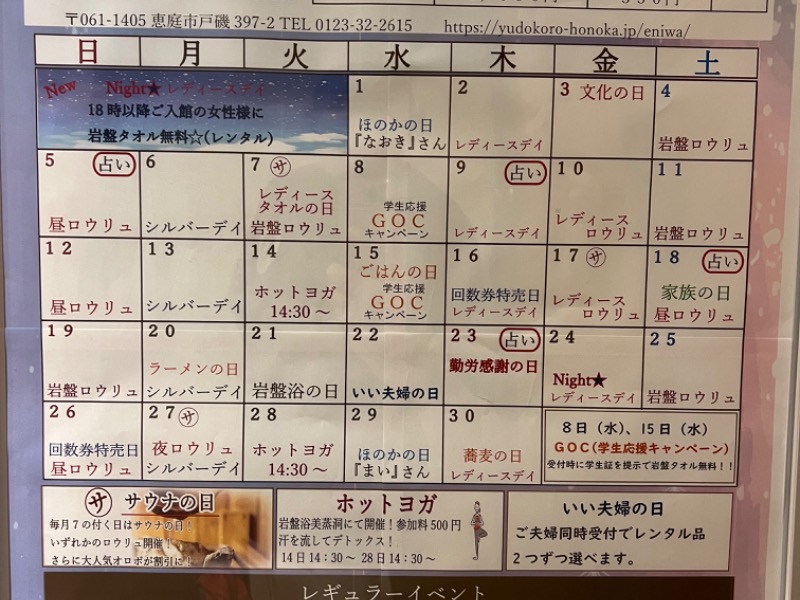 〒061-1405 恵庭市戸磯397-2 TEL 0123-32-2615 https://yudokoro-honoka.jp/eniwa/
日 月 火 水 木 金 土
New Night★レディースデイ
18時以降ご入館の女性様に
岩盤タオル無料☆(レンタル)
1
ほのかの日
『なおき』さん
2
レディースデイ
3 文化の日
4
岩盤ロウリュ
5 占い
昼ロウリュ
6
シルバーデイ
7 サ
レディース
タオルの日
岩盤ロウリュ
8
学生応援
GOC
キャンペーン
9 占い
レディースデイ
10
レディース
ロウリュ
11
岩盤ロウリュ
12
昼ロウリュ
13
シルバーデイ
14
ホットヨガ
14:30～
15
ごはんの日
学生応援
GOC
キャンペーン
16
回数券特売日
レディースデイ
17 サ
レディース
ロウリュ
18 占い
家族の日
昼ロウリュ
19
岩盤ロウリュ
20
ラーメンの日
シルバーデイ
21
岩盤浴の日
22
いい夫婦の日
23 占い
勤労感謝の日
24
Night★
レディースデイ
25
岩盤ロウリュ
26
回数券特売日
昼ロウリュ
27 サ
夜ロウリュ
シルバーデイ
28
ホットヨガ
14:30～
29
ほのかの日
『まい』さん
30
蕎麦の日
レディースデイ
8日(水)、15日(水)
GOC(学生応援キャンペーン)
受付時に学生証を提示で岩盤タオル無料！！
サ サウナの日
毎月7の付く日はサウナの日！
いずれかのロウリュ開催！
さらに大人気オロポが割引に！
ホットヨガ
岩盤浴美蒸洞にて開催！参加料500円
汗を流してデトックス！
14日14：30～ 28日14：30～
いい夫婦の日
ご夫婦同時受付でレンタル品
2つずつ選べます。
レギュラーイベント